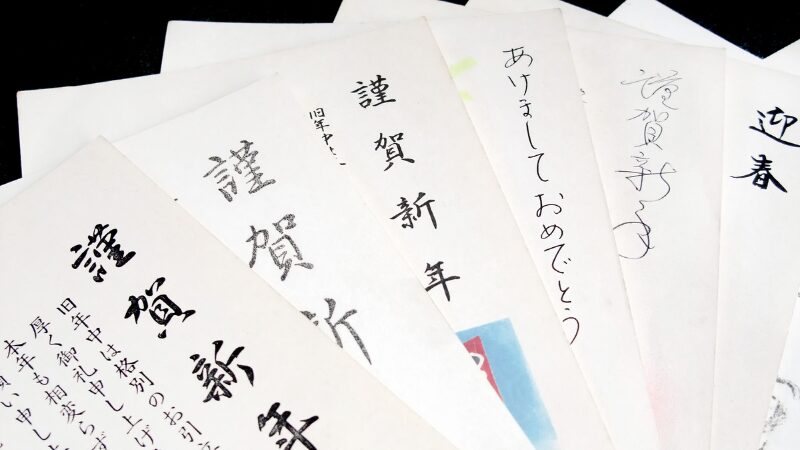 謹賀新年
旧年中は格別のお引立
厚く御礼申し上げ
本年も相変らず
願い申し上
謹賀新
謹賀新年
旧年中
あけましておめでとう
謹賀新年
迎春